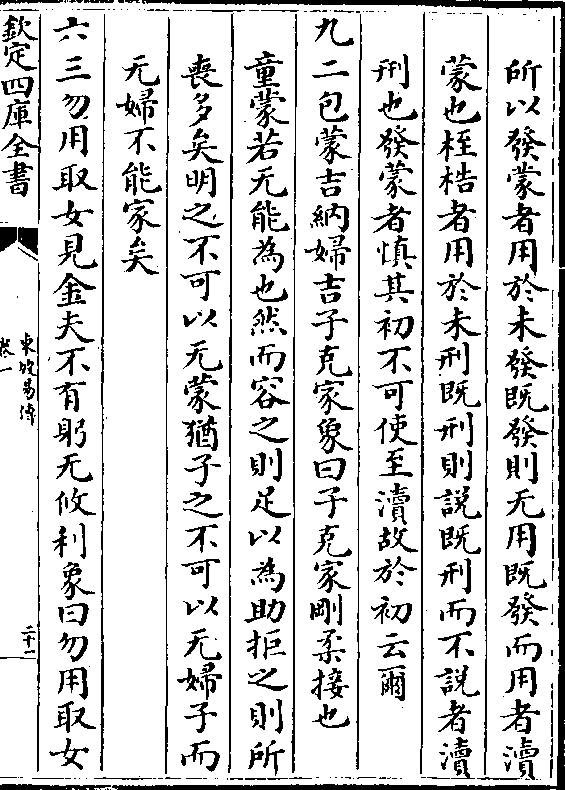 所以發蒙者用於未發既發則无用既發而用者瀆
蒙也桎梏者用於未刑既刑則說既刑而不說者瀆
刑也發蒙者慎其初不可使至瀆故於初云爾
九二包蒙吉納婦吉子克家象曰子克家剛柔接也
童蒙若无能為也然而容之則足以為助拒之則所
喪多矣明之不可以无蒙猶子之不可以无婦子而
无婦不能家矣
六三勿用取女見金夫不有躬无攸利象曰勿用取女
欽定四庫全書
東坡易傳
卷一
二十一